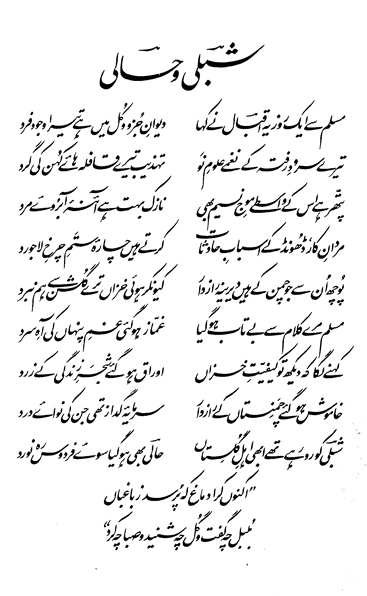 شبلی و حالی
مسلم سے ایک روز یہ اقبال نے کہا دیوانِ جزو و کل میں ہے تیرا وجود فرد
تیرے سرودِ رفتہ کے نغمے علومِ نو تہذیب تیرے قافلہ ہائے کہن کی گرد
پتھر ہے اس کے واسطے موجِ نسیم بھی نازک بہت ہے آئنۂ آبروئے مرد
مردانِ کار، ڈھونڈ کے اسبابِ حادثات کرتے ہیں چارۂ ستمِ چرخِ لاجورد
پوچھ اُن سے جو چمن کے ہیں دیرینہ رازدار کیونکر ہوئی خزاں ترے گلشن سے ہم نبرد
مسلم مرے کلام سے بے تاب ہوگیا غماز ہوگئی غمِ پنہاں کی آہِ سرد
کہنے لگا کہ دیکھ تو کیفیتِ خزاں اوراق ہو گئے شجرِ زندگی کے زرد
خاموش ہو گئے چمنستاں کے رازدار سرمایۂ گداز تھی جن کی نوائے درد
شبلی کو رو رہے تھے ابھی اہلِ گلستاں حالی بھی ہوگیا سوئے فردوس رہ نورد
"اکنوں کرا دماغ کہ پرسد ز باغباں
بلبل چہ گفت و گل چہ شنید و صبا چہ کرد"